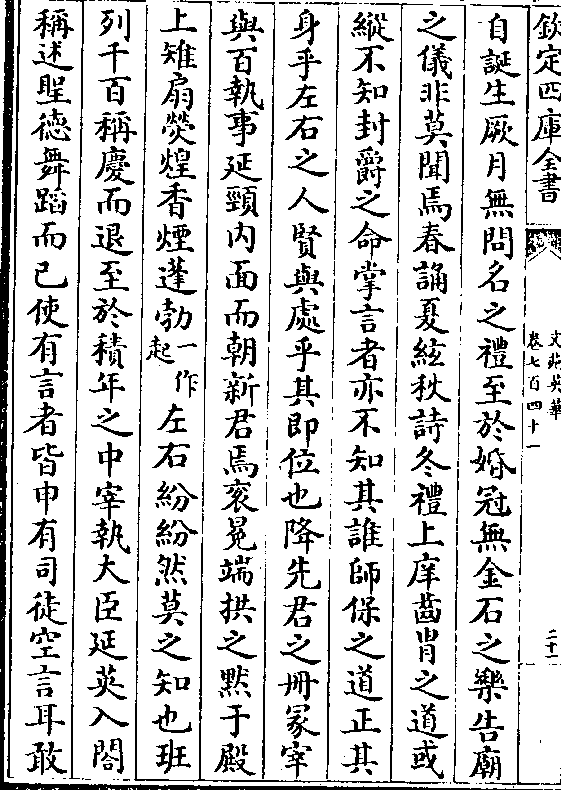 欽定四庫全書
文苑英華
卷七百四十一
二十一
自誕生厥月無問名之禮至於婚冠無金石之樂告廟
之儀非莫聞焉春誦夏絃秋詩冬禮上庠齒胄之道或
縱不知封爵之命掌言者亦不知其誰師保之道正其
身乎左右之人賢與處乎其即位也降先君之冊冢宰
與百執事延頸内面而朝新君焉衮冕端拱之黙于殿
上雉扇熒煌香煙蓬勃一作起左右紛紛然莫之知也班
列千百稱慶而退至於積年之中宰執大臣延英入閤
稱述聖德舞蹈而已使有言者皆申有司徒空言耳敢